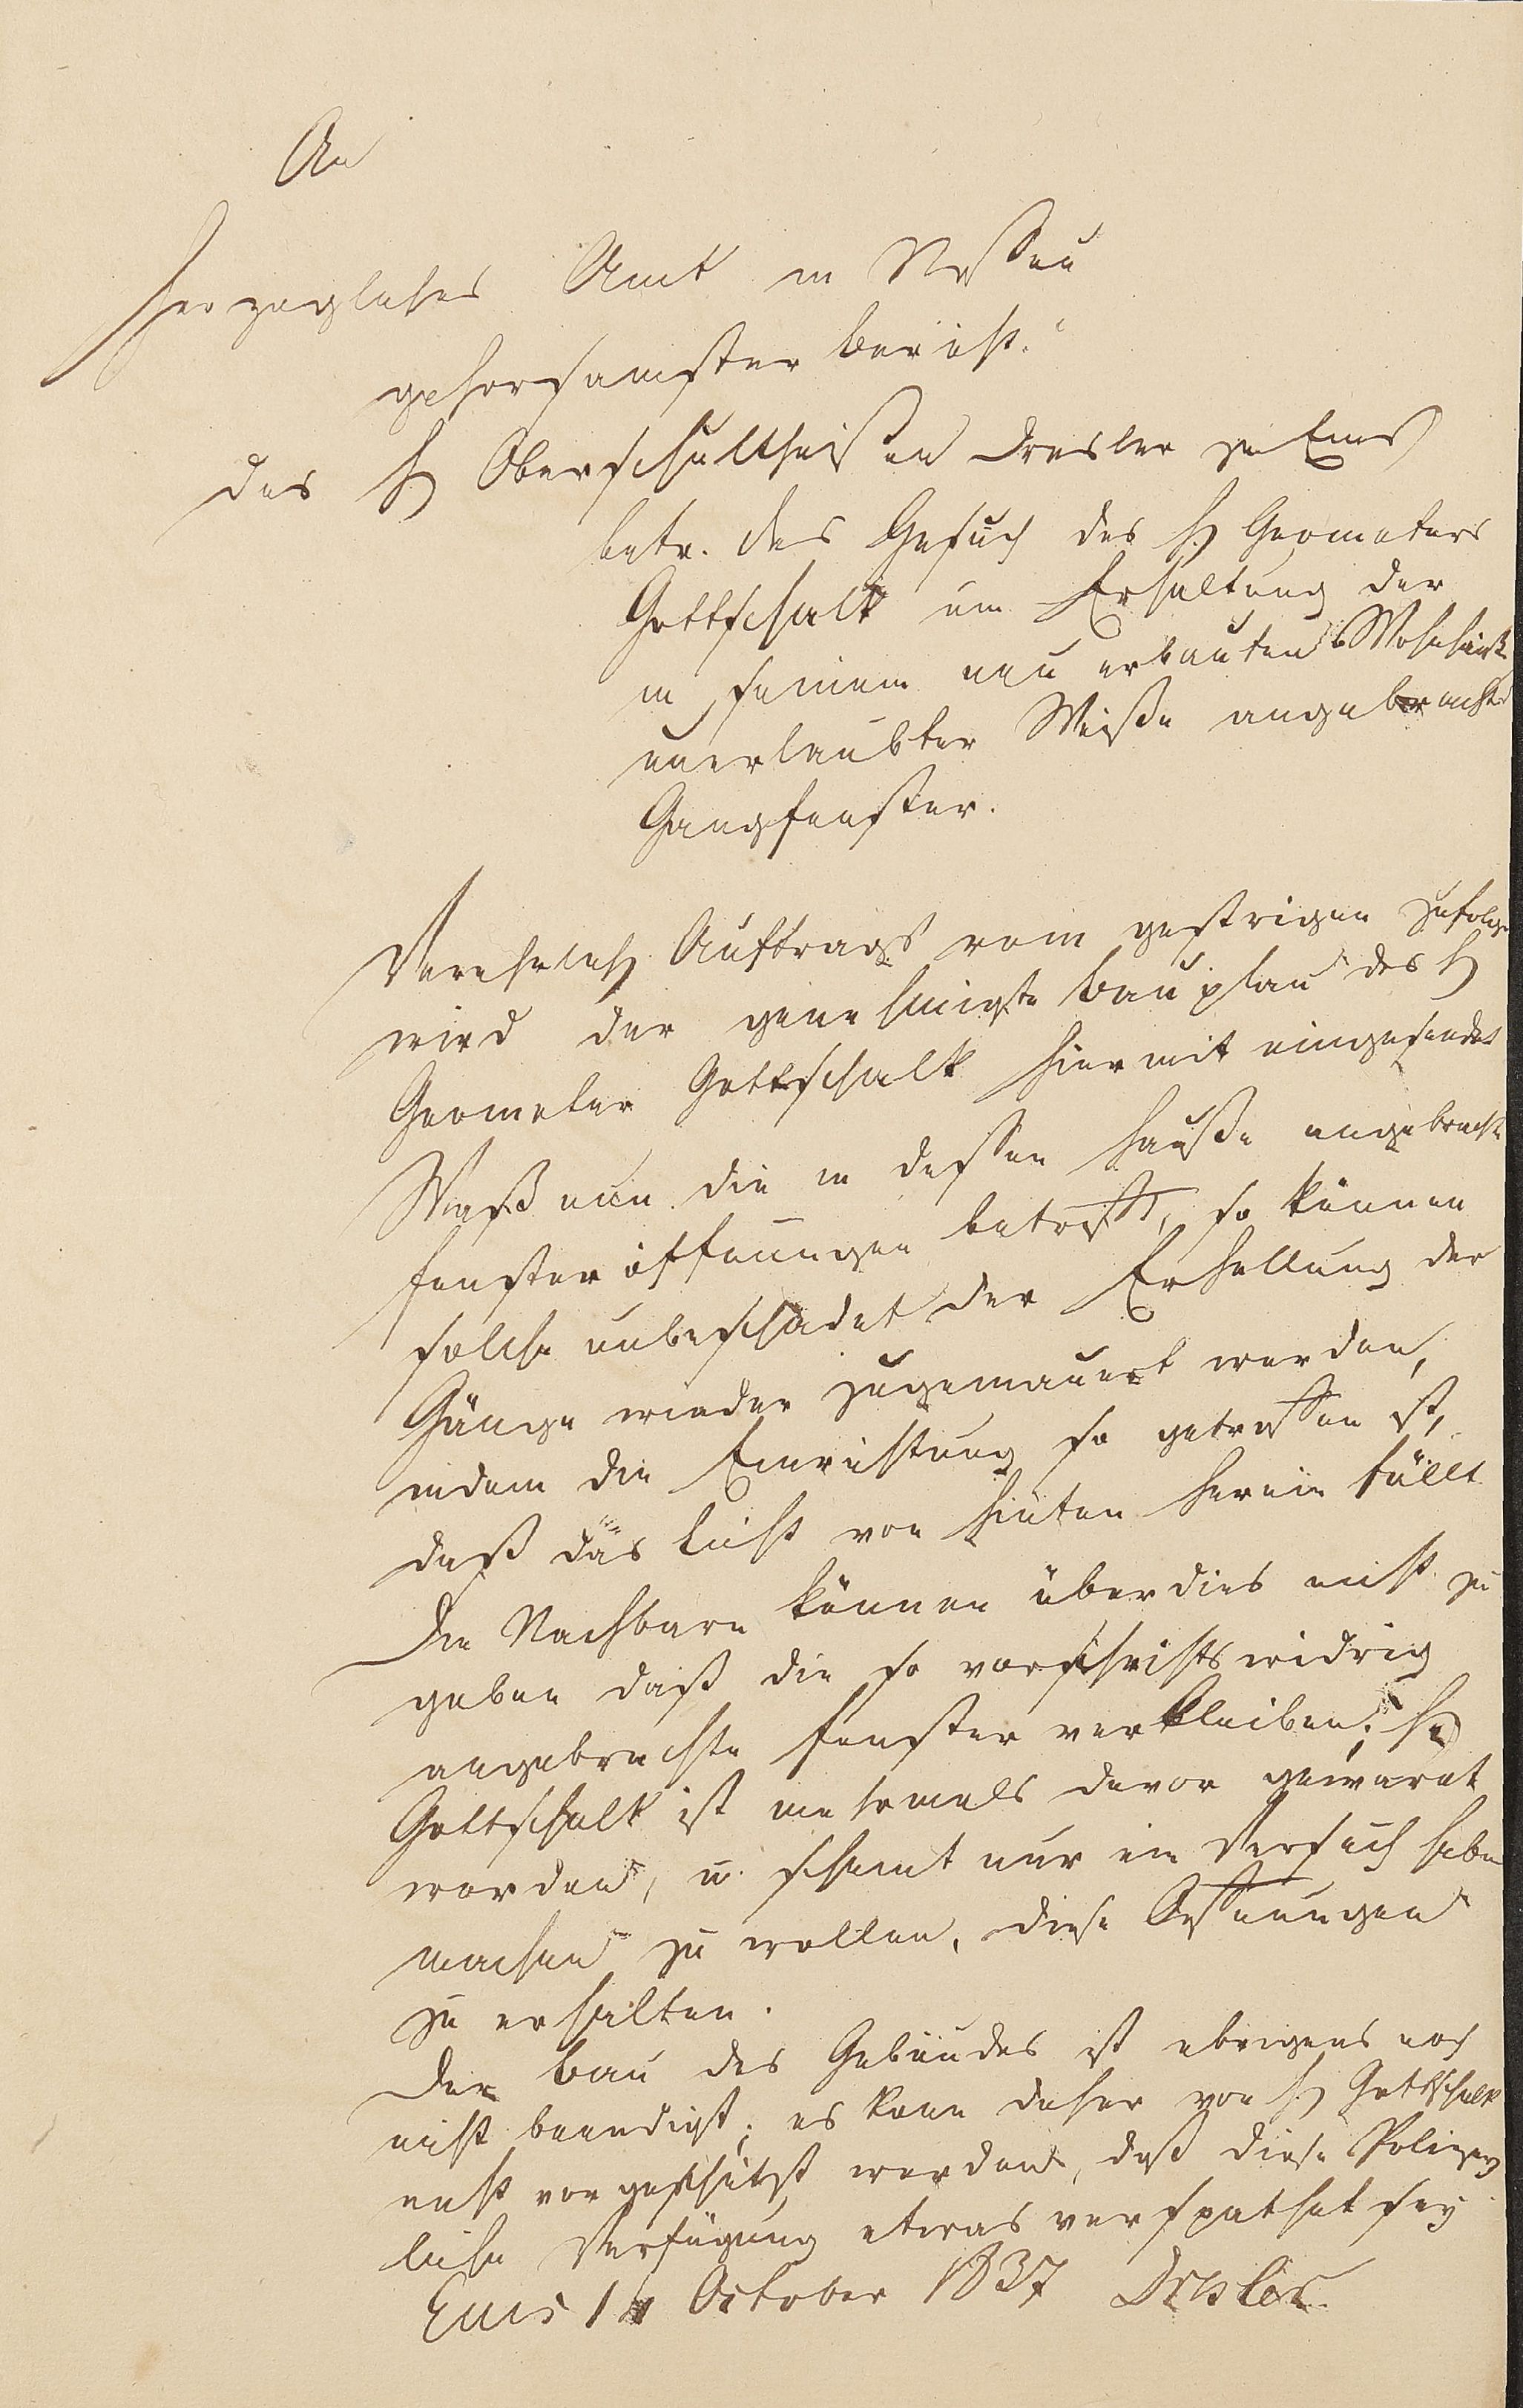 An
Herzogliches Amt in Nassau
gehorsamster Bericht
des H Oberschultheißen Dresler zu Ems
betr. des Gesuch des H Geometers
Gottschalk um Erhaltung der
in seinem neu erbauten Wohnhauße
unerlaubter Weiße angebrachte
Gangfenster.
Verehrlich Auftrags vom gestrigen zufolge
wird der genehmigte Bauplan des H
Geometer Gottschalk hiermit eingesendet
Waß nun die in dessen Hauße angebrachte
Fensteröffnungen betrifft, so können
solche unbeschadet der Erhellung der
Gänge wieder zugemauert werden,
indem die Einrichtung so getroffen ist,
daß das Licht von hinten herein fällt
Die Nachbarn können überdies nicht zu
geben daß die so vorschriftswidrig
angebrachte Fenster verbleiben; H
Gottschalk ist mehrmals davor gewarnt
worden, u. scheint nur ein Versuch haben
machen zu wollen, diese Oeffnungen
zu erhalten.
Der Bau des Gebäudes ist ebrigens noch
nicht beendigt; es kann daher von H Gottschalk
nicht vorgeschützt werden, daß diese Polizey
liche Verfügung etwas verspathet sey
Ems October 1837 Dresler